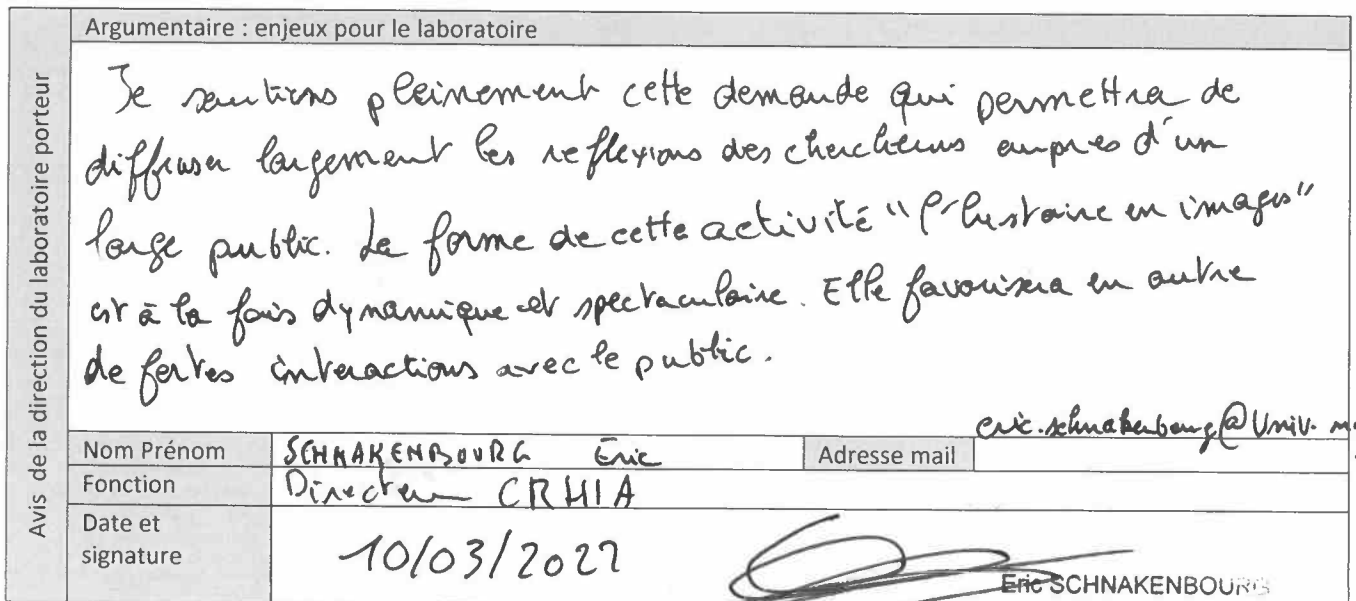 Argumentaire : enjeux pour le laboratoire
Avis de la direction du laboratoire porteur
Je soutiens pleinement cette demande qui permettra de
diffuser largement les reflexions des chercheurs aupres d'un
large public. La forme de cette activité "l'histoire en images"
est à la fois dynamique et spectaculaire. Elle favorisera en outre
de fortes interactions avec le public.
Nom Prénom SCHNAKENBOURG Eric Adresse mail eric.schnakenbourg@Univ.
Fonction Directeur CRHIA
Date et
signature 10/03/2022
Eric SCHNAKENBOURG